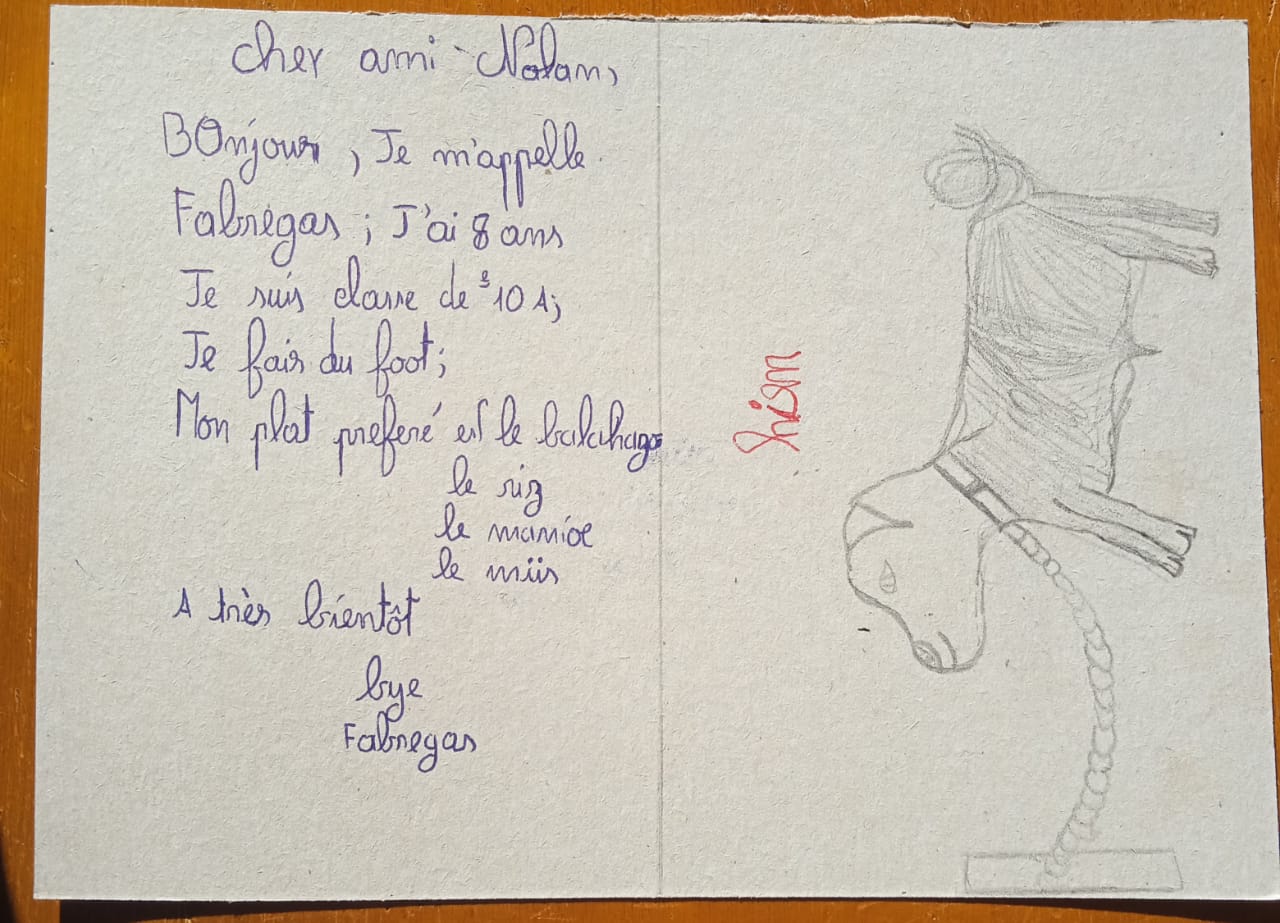 Cher ami Nolan,
BOnjour, Je m'appelle
Fabregas; J'ai 8 ans
Je suis classe de 10 A;
Je fais du foot;
Mon plat preferé est le balahazo
le riz
le manioc
le miis
A très bientôt
bye
Fabregas